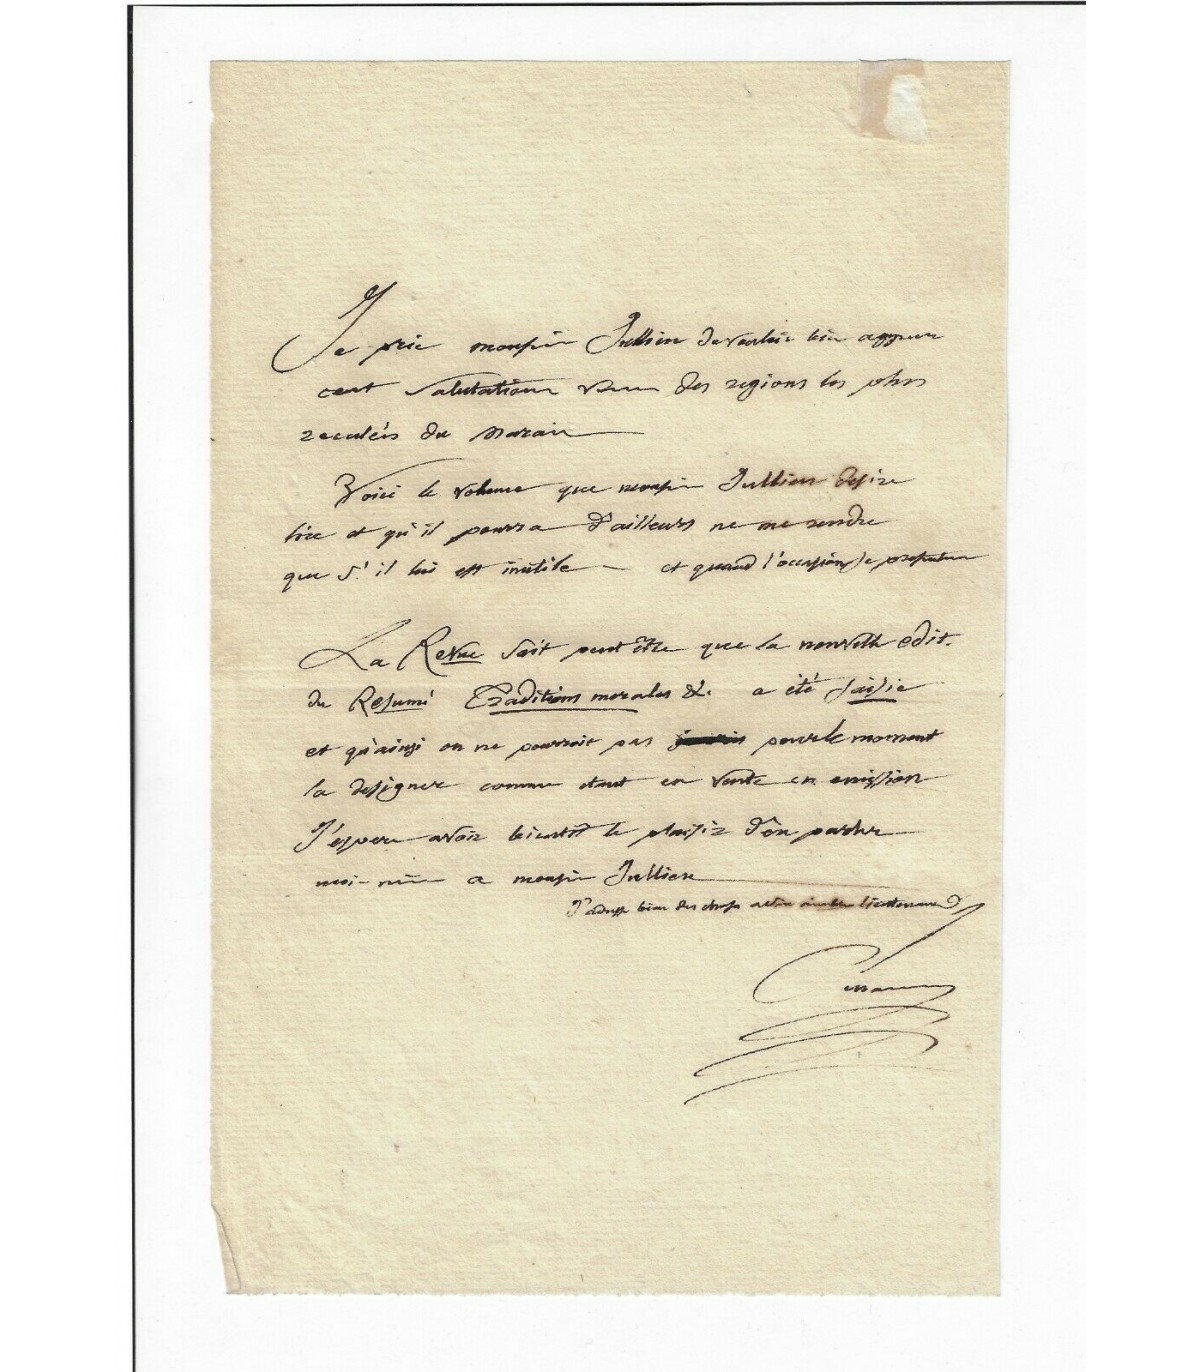 Je prie monsieur Jullien de vouloir bien agreer
cent salutations venues des regions les plus
reculées du marais
Voici le volume que monsieur Jullien desire
lire et qu'il pourra d'ailleurs ne me rendre
que s'il lui est inutile et quand l'occasion se presentera
La Revue sait peut être que la nouvelle édit.
du Resumé Traditions morales &c. a été saisie
et qu'ainsi on ne pourroit pas pour le moment
la designer comme etant en vente en emission
J'espere avoir bientôt le plaisir d'en parler
moi-même a monsieur Jullien
J'adresse bien des choses